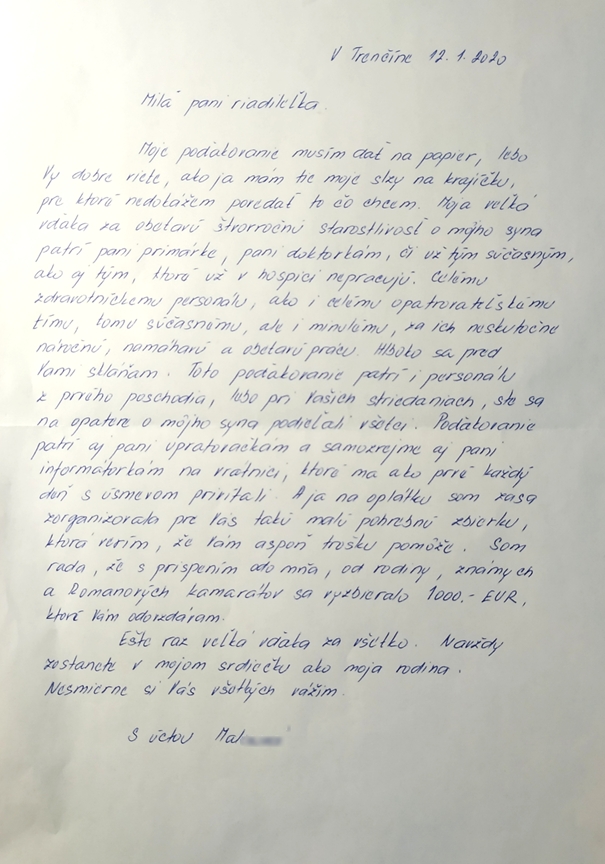 V Trenčíne 12.1.2020
Milá pani riaditeľka.
Moje poďakovanie musím dať na papier, lebo
Vy dobre viete, ako ja mám tie moje slzy na krajíčku,
pre ktoré nedokážem povedať to čo chcem. Moja veľká
vďaka za obetavú štvorročnú starostlivosť o môjho syna
patrí pani primárke, pani doktorkám, či už tým súčasným,
ako aj tým, ktoré už v hospici nepracujú. Celému
zdravotníckemu personálu, ako i celému opatrovateľskému
tímu, tomu súčasnému, ale i minulému, za ich neskutočne
náročnú, namáhavú a obetavú prácu. Hlboko sa pred
Vami skláňam. Toto poďakovanie patrí i personálu
z prvého poschodia, lebo pri Vašich striedaniach, ste sa
na opatere o môjho syna podieľali všetci. Poďakovanie
patrí aj pani upratovačkám a samozrejme aj pani
informátorkám na vrátnici, ktoré ma ako prvé každý
deň s úsmevom privítali. A ja na oplátku som zasa
zorganizovala pre Vás takú malú pohrebnú zbierku,
ktorá verím, že Vám aspoň trošku pomôže. Som
rada, že s prispením odo mňa, od rodiny, známych
a Romanových kamarátov sa vyzbieralo 1000,- EUR,
ktoré Vám odovzdávam.
Ešte raz veľká vďaka za všetko. Navždy
zostanete v mojom srdiečku ako moja rodina.
Nesmierne si Vás všetkých vážim.
S úctou Mal